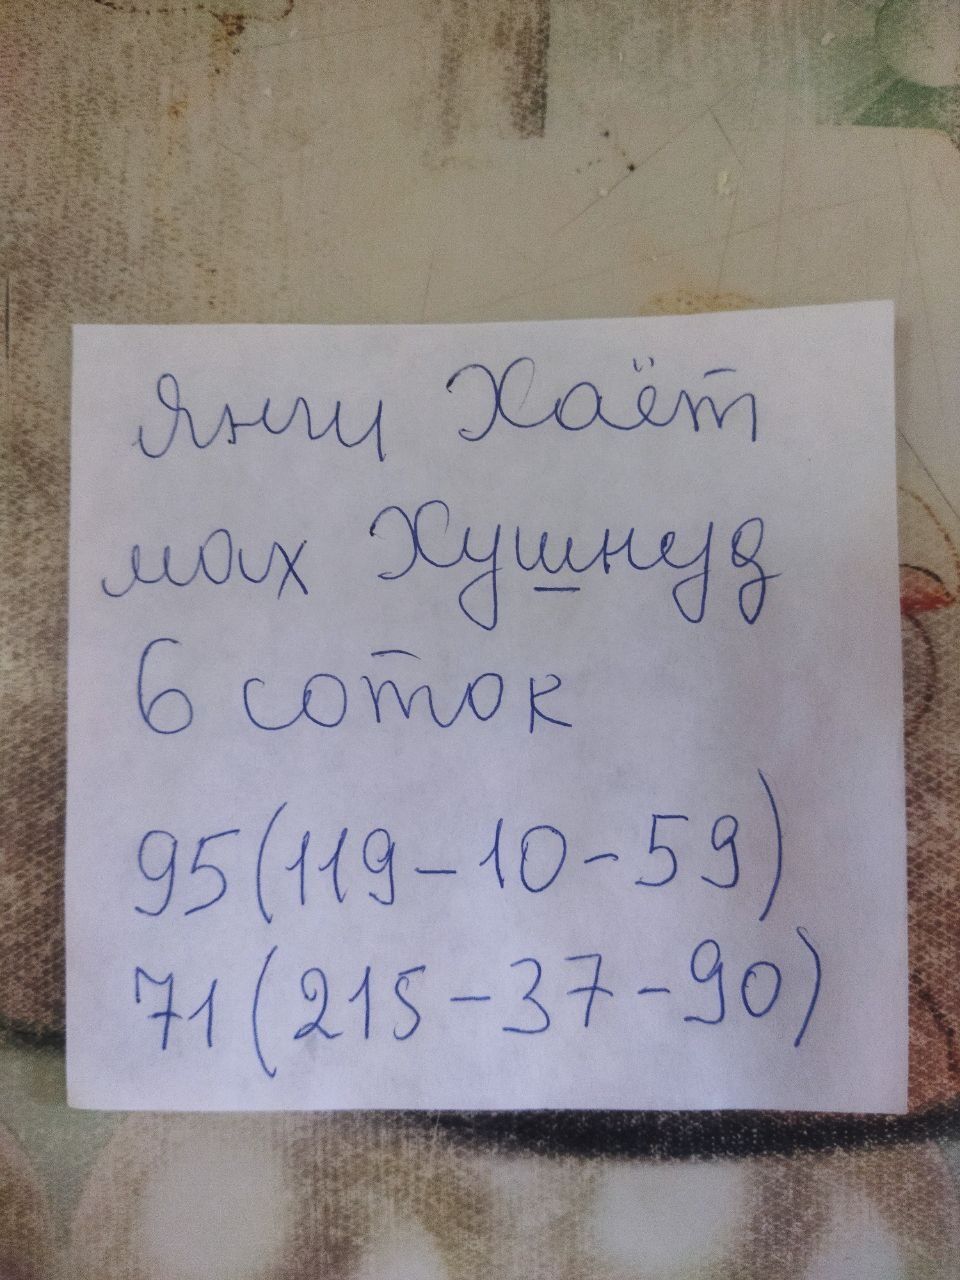 Янги Хаёт
мах Хушнуд
6 соток
95(119-10-59)
71(215-37-90)